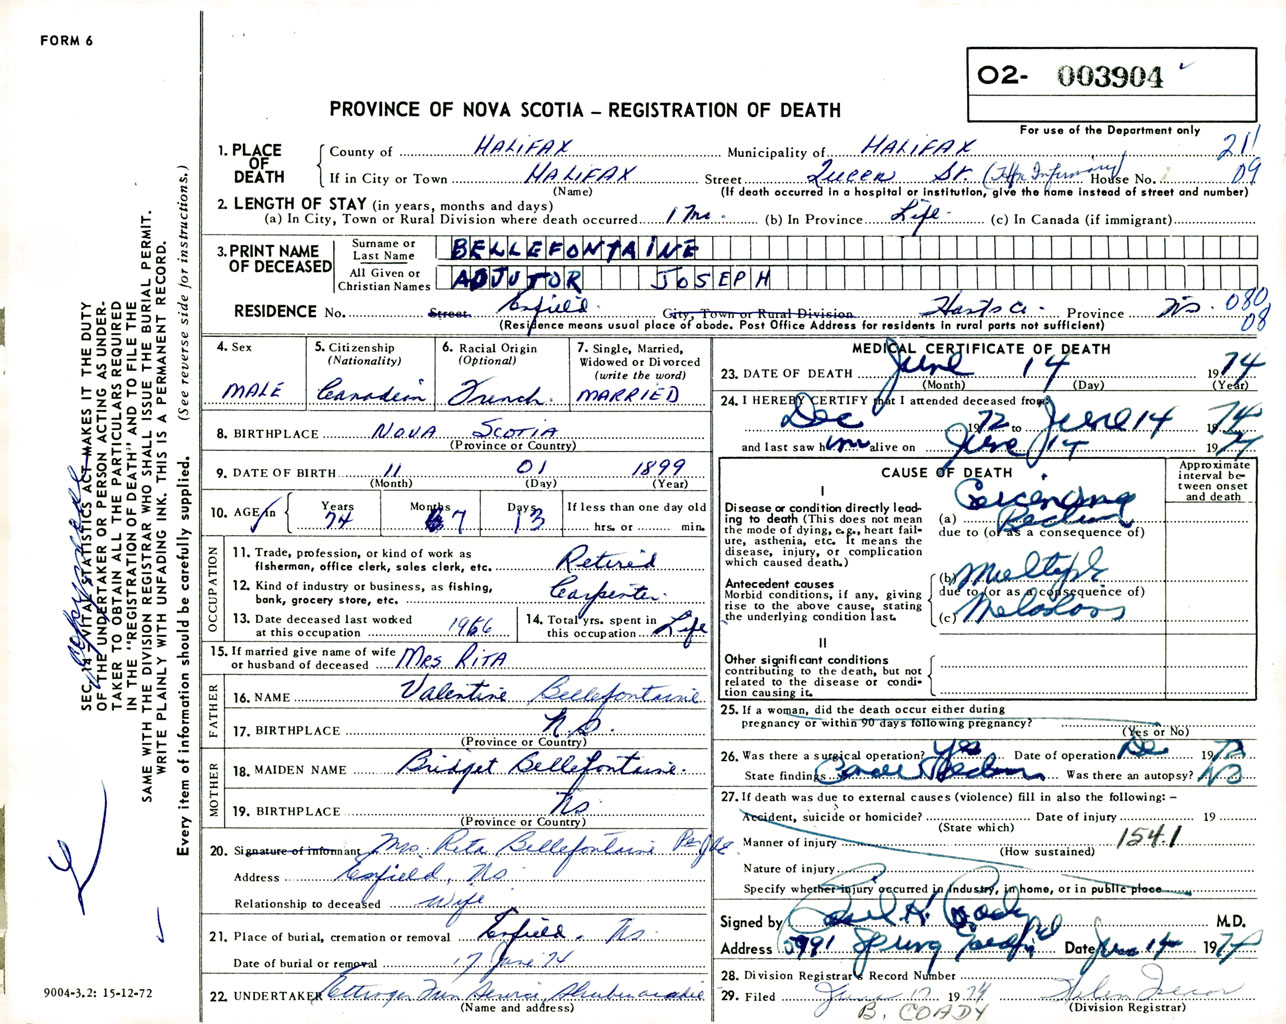 FORM 6
O2- 003904
PROVINCE OF NOVA SCOTIA – REGISTRATION OF DEATH
For use of the Department only
1. PLACE OF DEATH
County of HALIFAX Municipality of HALIFAX 211
If in City or Town HALIFAX Street Queen St. (Hfx Infirmary) House No. 09
(Name) (If death occurred in a hospital or institution, give the name instead of street and number)
2. LENGTH OF STAY (in years, months and days)
(a) In City, Town or Rural Division where death occurred 1 Mo. (b) In Province Life (c) In Canada (if immigrant)
3. PRINT NAME OF DECEASED
Surname or Last Name BELLEFONTAINE
All Given or Christian Names ADJUTOR JOSEPH
RESIDENCE No. Street Enfield City, Town or Rural Division Hants Co. Province N.S. 080
08
(Residence means usual place of abode. Post Office Address for residents in rural parts not sufficient)
4. Sex
MALE
5. Citizenship
(Nationality)
Canadian
6. Racial Origin
(Optional)
French
7. Single, Married,
Widowed or Divorced
(write the word)
MARRIED
8. BIRTHPLACE NOVA SCOTIA
(Province or Country)
9. DATE OF BIRTH 11 01 1899
(Month) (Day) (Year)
10. AGE in Years 74 Months 7 Days 13 If less than one day old
hrs. or min.
OCCUPATION
11. Trade, profession, or kind of work as
fisherman, office clerk, sales clerk, etc. Retired
12. Kind of industry or business, as fishing,
bank, grocery store, etc. Carpenter
13. Date deceased last worked
at this occupation 1966
14. Total yrs. spent in
this occupation Life
15. If married give name of wife
or husband of deceased MRS RITA
FATHER
16. NAME Valentine Bellefontaine
17. BIRTHPLACE N.S.
(Province or Country)
MOTHER
18. MAIDEN NAME Bridget Bellefontaine
19. BIRTHPLACE NS
(Province or Country)
20. Signature of informant Mrs. Rita Bellefontaine
Address Enfield, NS
Relationship to deceased wife
21. Place of burial, cremation or removal Enfield, NS
Date of burial or removal 17 June 74
22. UNDERTAKER Ettinger Fun Service, Shubenacadie
(Name and address)
MEDICAL CERTIFICATE OF DEATH
23. DATE OF DEATH June 14 1974
(Month) (Day) (Year)
24. I HEREBY CERTIFY that I attended deceased from:
Dec 1972 to June 14 1974
and last saw him alive on June 14 1974
CAUSE OF DEATH
Approximate
interval be-
tween onset
and death
I
Disease or condition directly lead-
ing to death (This does not mean
the mode of dying, e.g., heart fail-
ure, asthenia, etc. It means the
disease, injury, or complication
which caused death.)
(a) Carcinoma
Rectum
due to (or as a consequence of)
Antecedent causes
Morbid conditions, if any, giving
rise to the above cause, stating
the underlying condition last.
(b) Multiple
due to (or as a consequence of)
(c)
II
Other significant conditions
contributing to the death, but not
related to the disease or condi-
tion causing it.
25. If a woman, did the death occur either during
pregnancy or within 90 days following pregnancy?
(Yes or No)
26. Was there a surgical operation? yes Date of operation De 1972
State findings Was there an autopsy? No
27. If death was due to external causes (violence) fill in also the following: –
Accident, suicide or homicide? Date of injury 19
(State which)
Manner of injury 1541
(How sustained)
Nature of injury
Specify whether injury occurred in industry, in home, or in public place
Signed by M.D.
Address 5991 Spring Garden Rd Date June 14 1974
28. Division Registrar's Record Number
29. Filed June 17 1974
(Division Registrar)
B. COADY
SEC. 14 VITAL STATISTICS ACT MAKES IT THE DUTY
OF THE UNDERTAKER OR PERSON ACTING AS UNDER-
TAKER TO OBTAIN ALL THE PARTICULARS REQUIRED
IN THE "REGISTRATION OF DEATH" AND TO FILE THE
SAME WITH THE DIVISION REGISTRAR WHO SHALL ISSUE THE BURIAL PERMIT.
WRITE PLAINLY WITH UNFADING INK. THIS IS A PERMANENT RECORD.
Every item of information should be carefully supplied. (See reverse side for instructions.)
9004-3.2: 15-12-72